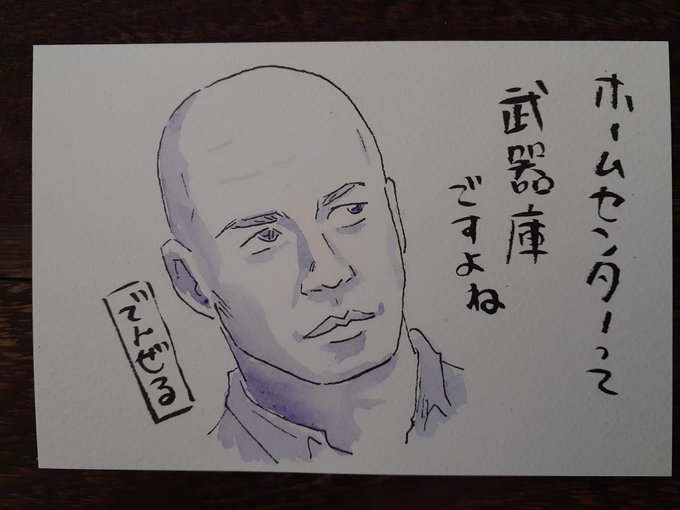 ホームセンターって
武器庫
ですよね
でんぜる